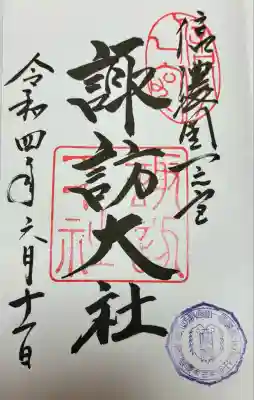 信濃國一之宮
諏訪大社
令和四年六月十一日